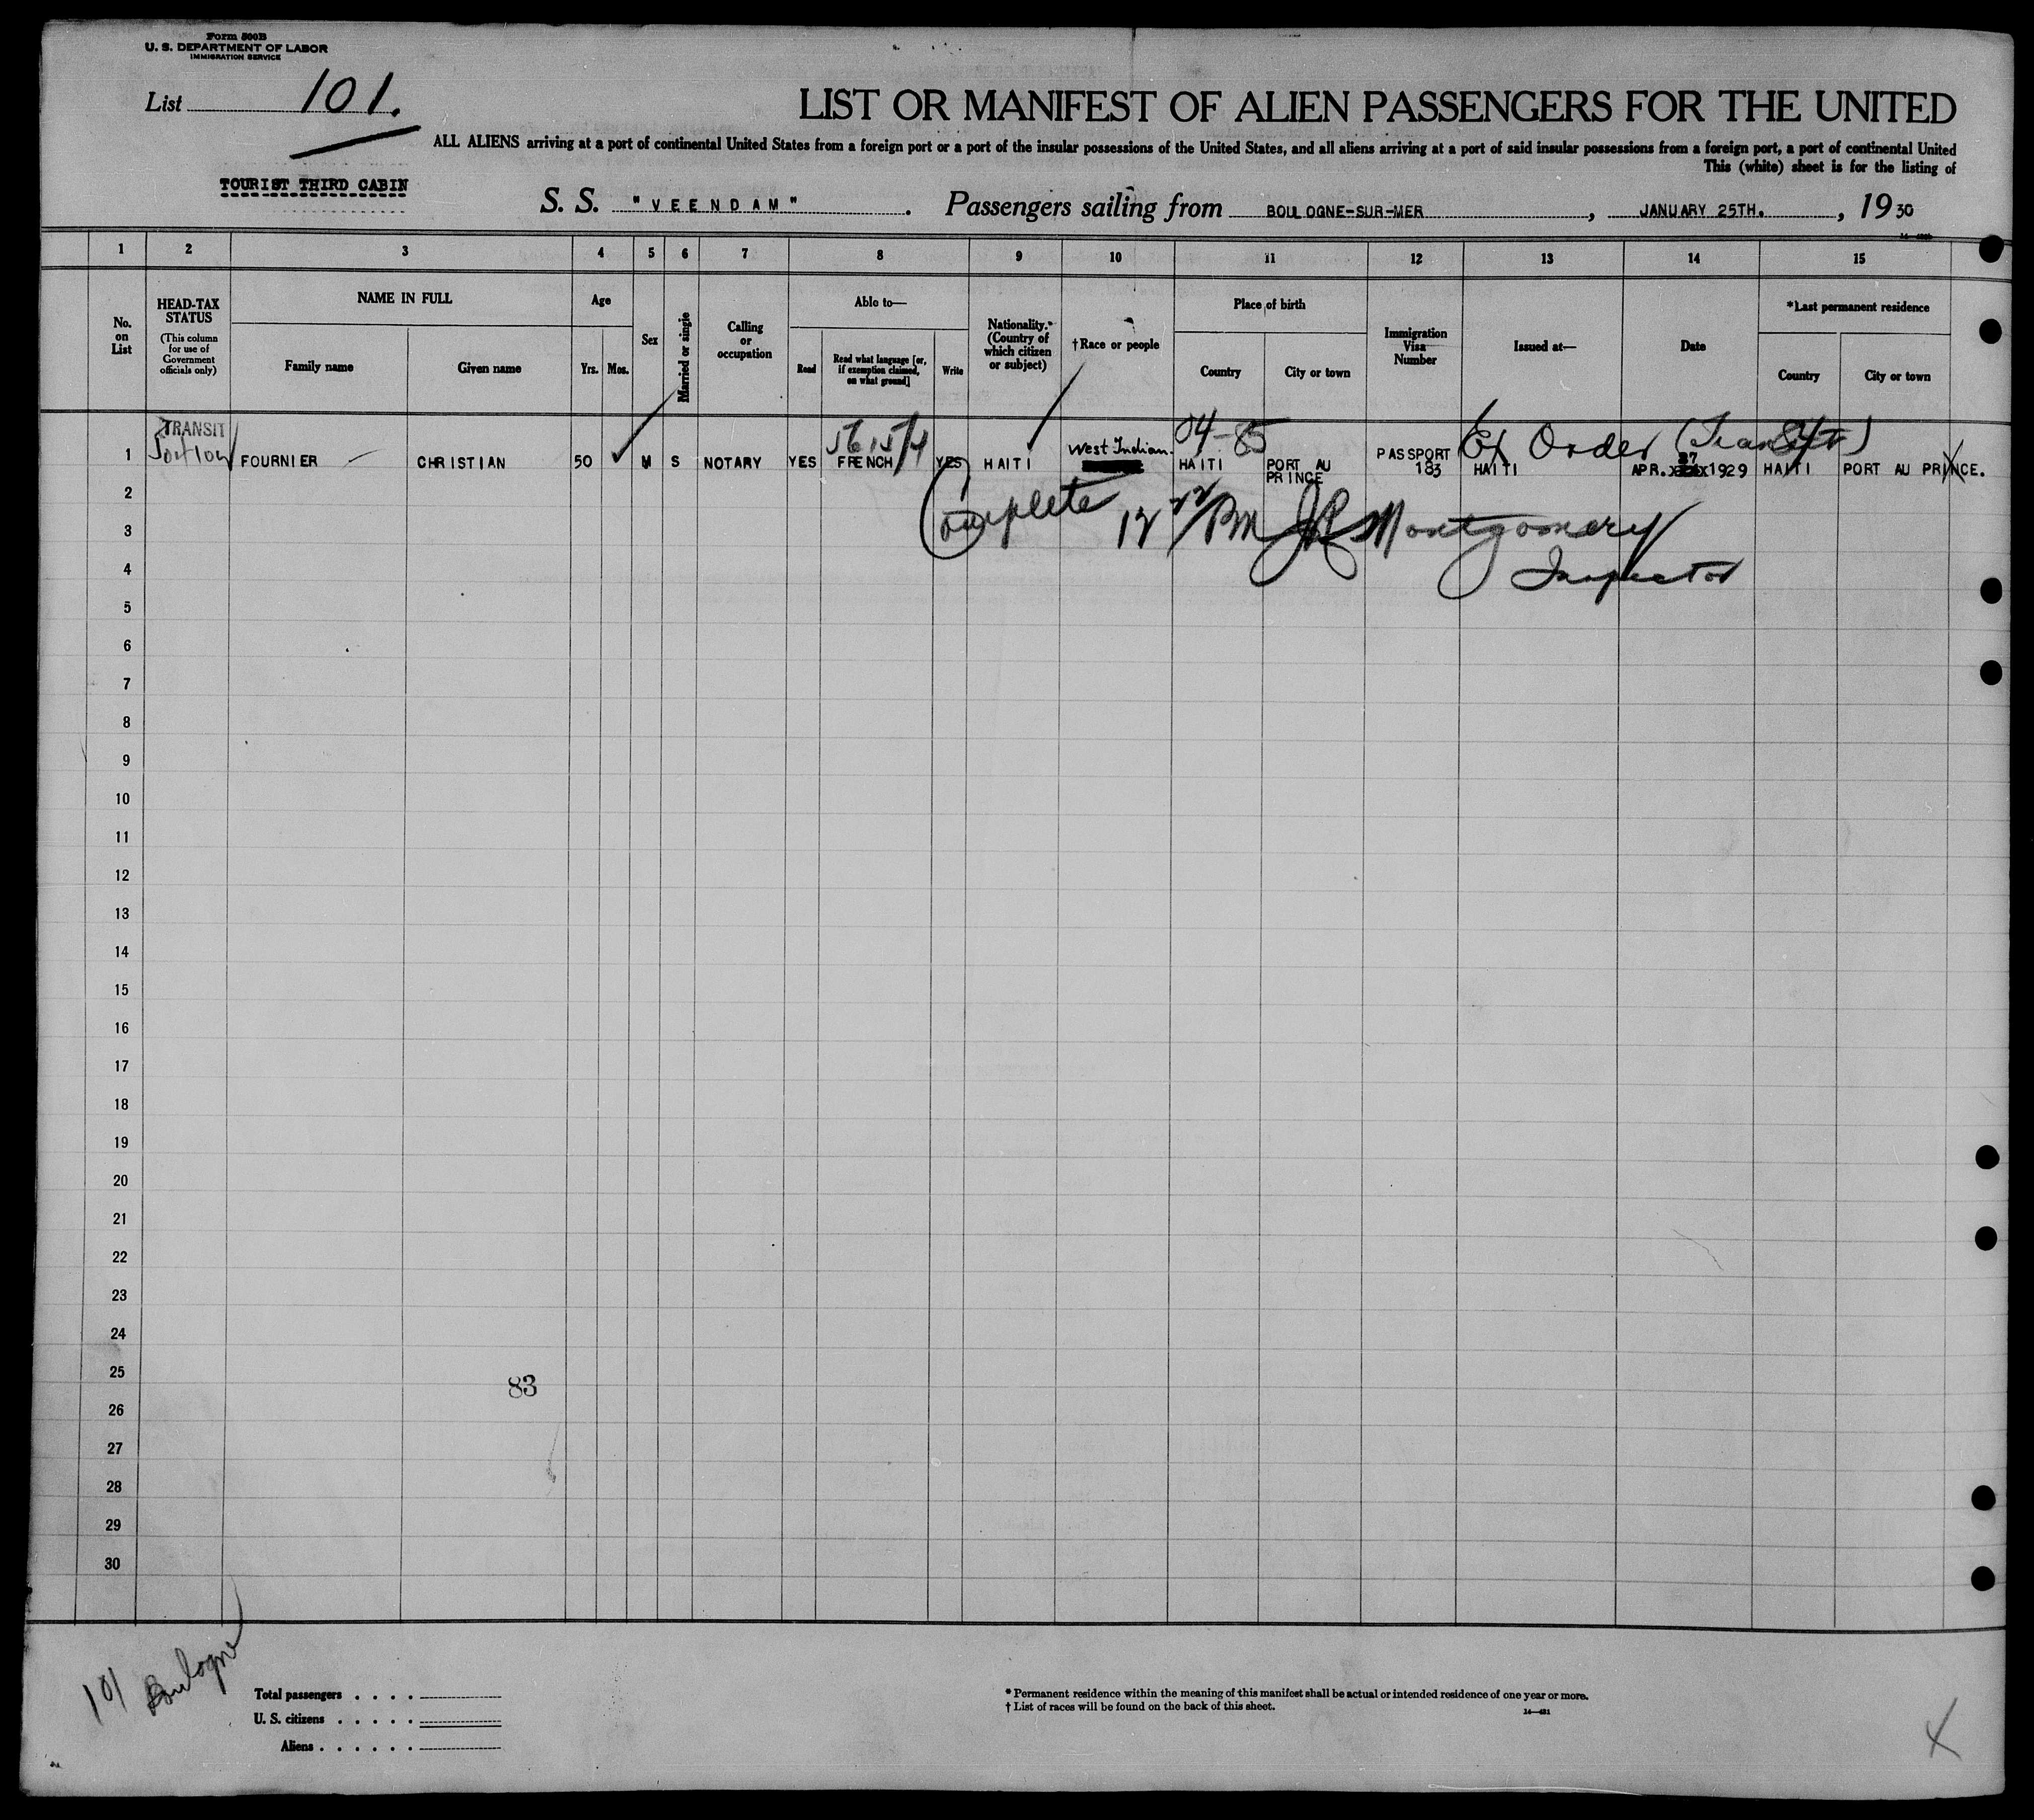 Form 500B
U. S. DEPARTMENT OF LABOR
IMMIGRATION SERVICE
List 101.
LIST OR MANIFEST OF ALIEN PASSENGERS FOR THE UNITED
ALL ALIENS arriving at a port of continental United States from a foreign port or a port of the insular possessions of the United States, and all aliens arriving at a port of said insular possessions from a foreign port, a port of continental United
This (white) sheet is for the listing of
TOURIST THIRD CABIN
S. S. "VEENDAM". Passengers sailing from BOULOGNE-SUR-MER, JANUARY 25TH., 1930
1 2 3 4 5 6 7 8 9 10 11 12 13 14 15
No. on List
HEAD-TAX STATUS
(This column for use of Government officials only)
NAME IN FULL
Family name
Given name
Age
Yrs.
Mos.
Sex
Married or single
Calling or occupation
Able to—
Read
Read what language [or, if exemption claimed, on what ground]
Write
Nationality.* (Country of which citizen or subject)
†Race or people
Place of birth
Country
City or town
Immigration Visa Number
Issued at—
Date
*Last permanent residence
Country
City or town
TRANSIT
04-85
Ex Order (Transit)
1 FOURNIER CHRISTIAN 50 M S NOTARY YES FRENCH YES HAITI West Indian. HAITI PORT AU PRINCE PASSPORT 183 HAITI APR. 27 1929 HAITI PORT AU PRINCE.
Complete 12 22/PM JR Montgomery
Inspector
2
3
4
5
6
7
8
9
10
11
12
13
14
15
16
17
18
19
20
21
22
23
24
25
83
26
27
28
29
30
101 Boulogne
Total passengers
U. S. citizens
Aliens
* Permanent residence within the meaning of this manifest shall be actual or intended residence of one year or more.
† List of races will be found on the back of this sheet.
14—421
X